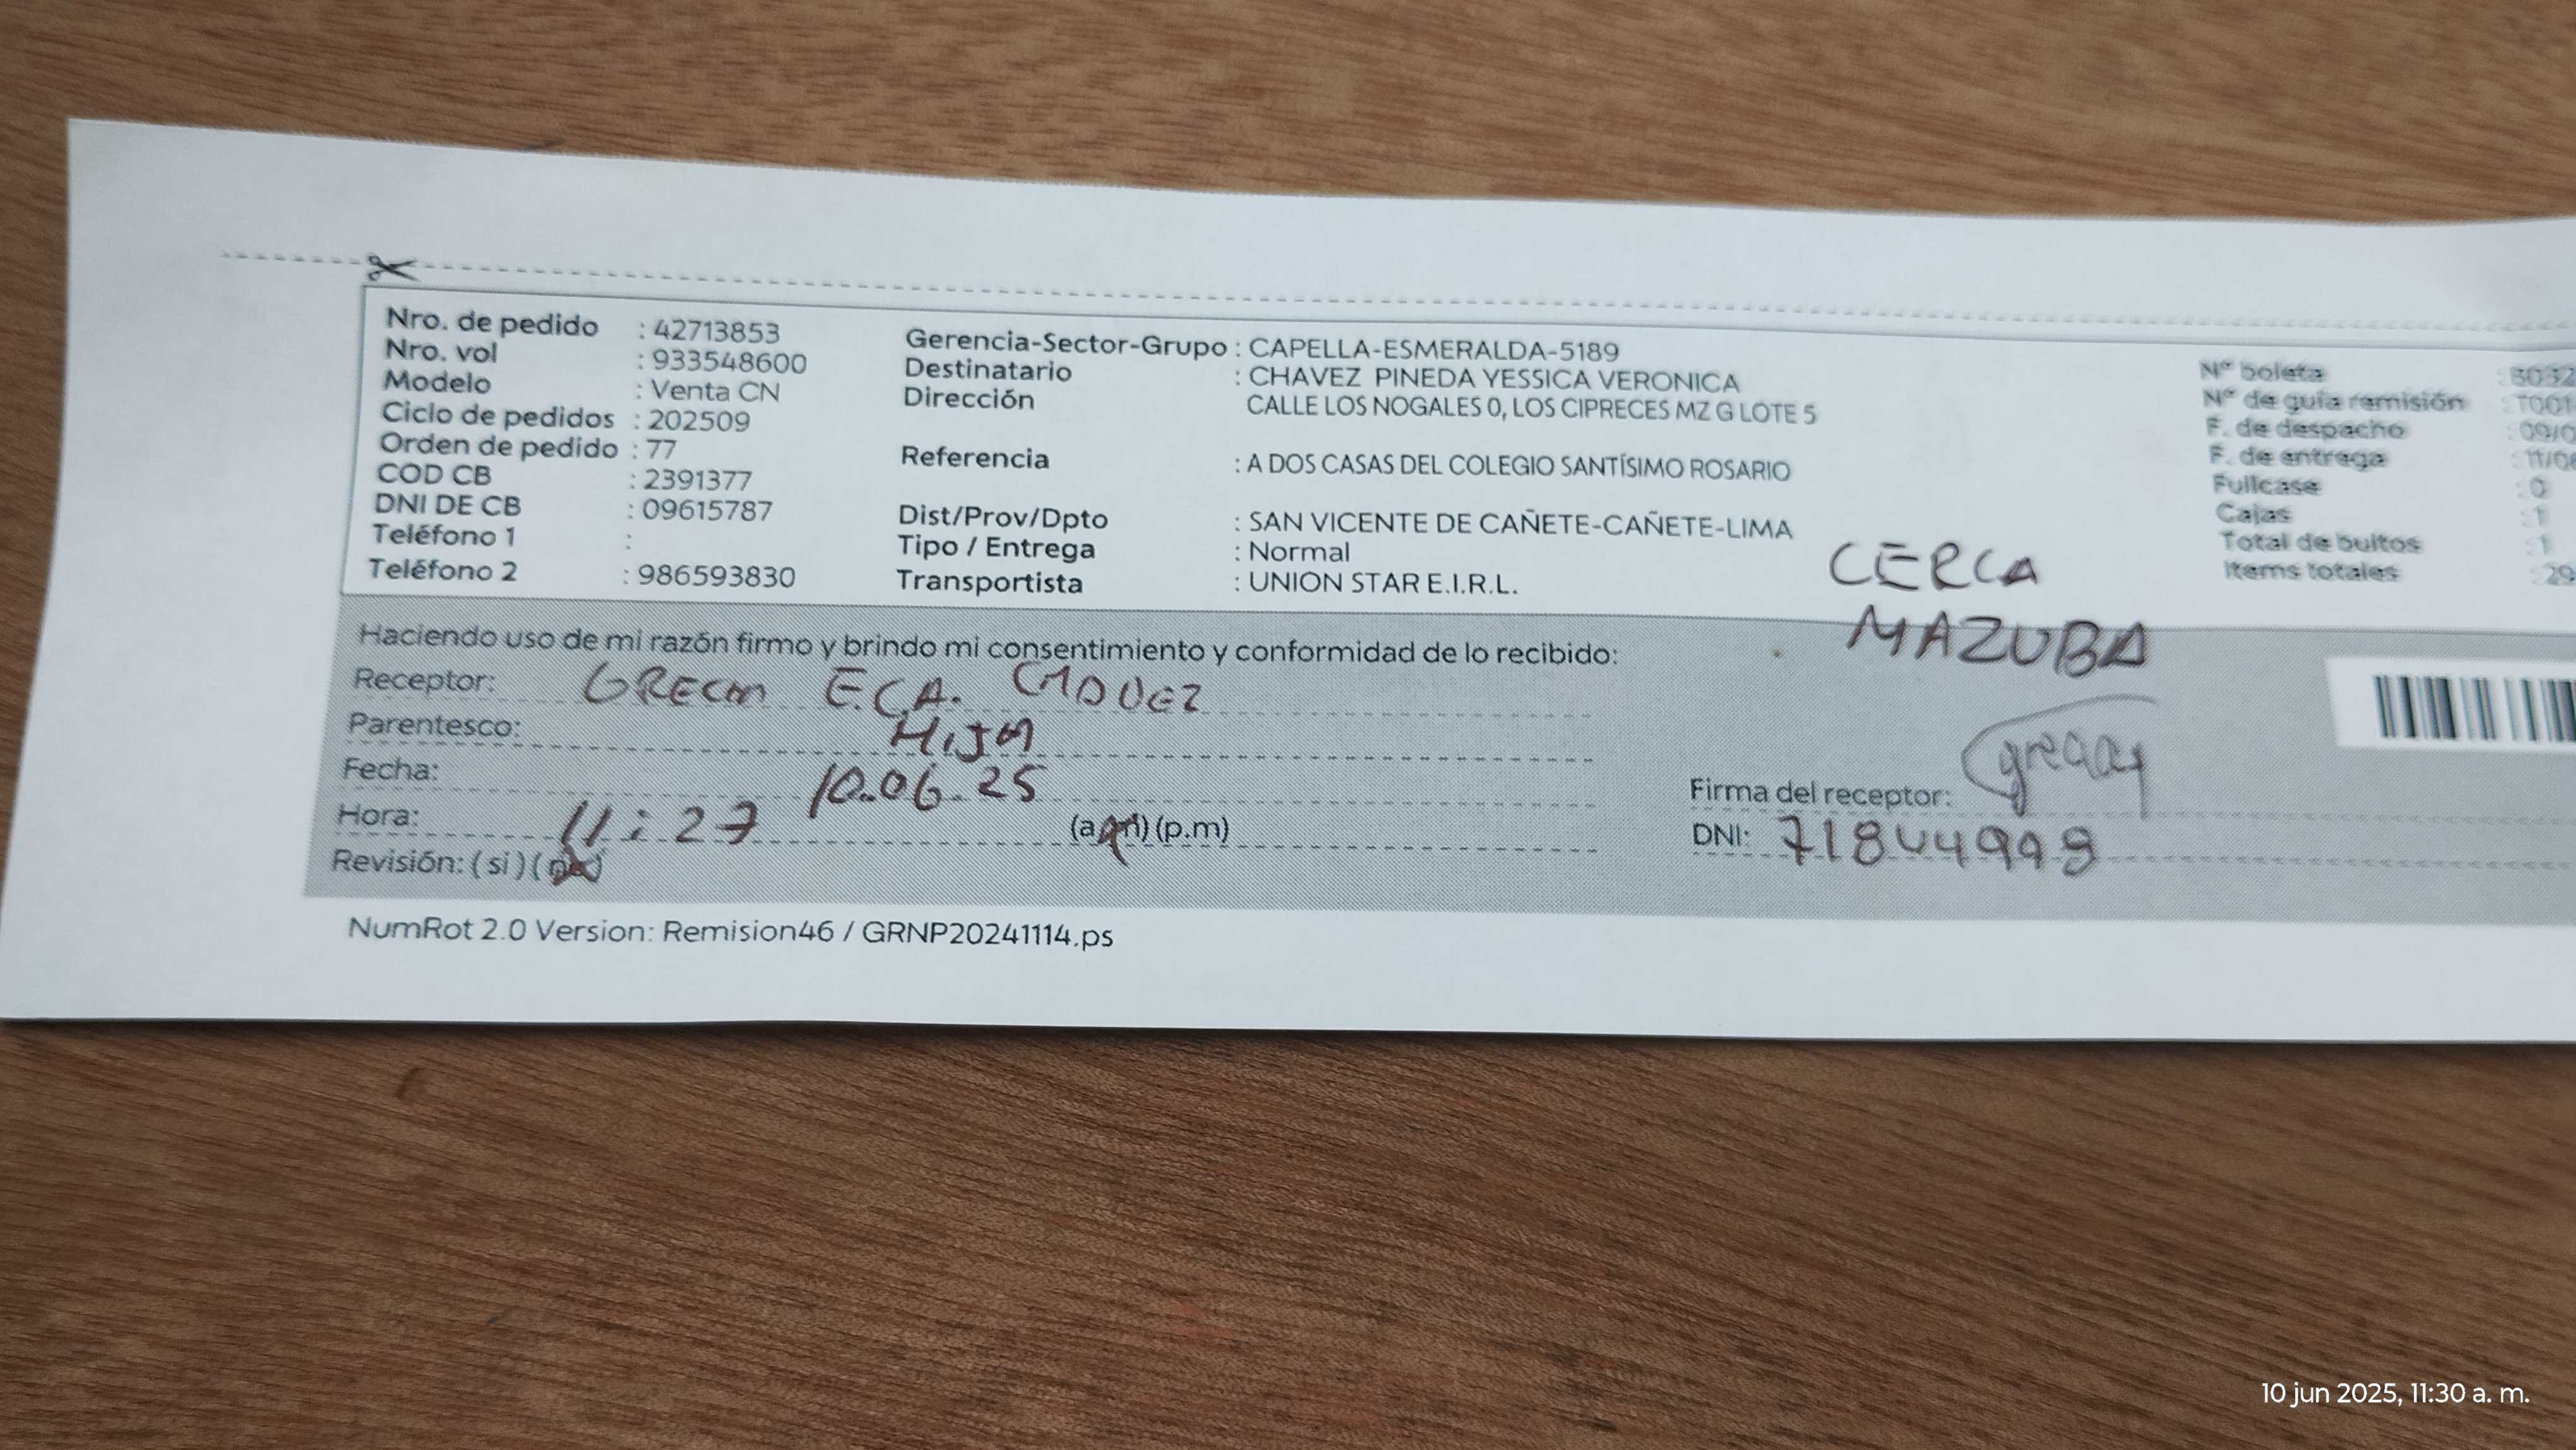 Nro. de pedido : 42713853
Nro. vol : 933548600
Modelo : Venta CN
Ciclo de pedidos : 202509
Orden de pedido : 77
COD CB : 2391377
DNI DE CB : 09615787
Teléfono 1 :
Teléfono 2 : 986593830
Gerencia-Sector-Grupo : CAPELLA-ESMERALDA-5189
Destinatario : CHAVEZ PINEDA YESSICA VERONICA
Dirección CALLE LOS NOGALES 0, LOS CIPRECES MZ G LOTE 5
Referencia : A DOS CASAS DEL COLEGIO SANTÍSIMO ROSARIO
Dist/Prov/Dpto : SAN VICENTE DE CAÑETE-CAÑETE-LIMA
Tipo / Entrega : Normal
Transportista : UNION STAR E.I.R.L.
N° boleta
N° de guía remisión : T001
F. de despacho : 09/0
F. de entrega : 11/06
Fullcase : 0
Cajas : 1
Total de bultos : 1
Items totales : 29
CERCA
MAZUBA
Haciendo uso de mi razón firmo y brindo mi consentimiento y conformidad de lo recibido:
Receptor:
Parentesco: HIJA
Fecha: 10.06.25
Hora: 11:27 (a.m) (p.m)
Revisión: ( si ) ( no )
Firma del receptor:
DNI: 71844998
NumRot 2.0 Version: Remision46 / GRNP20241114.ps
10 jun 2025, 11:30 a. m.